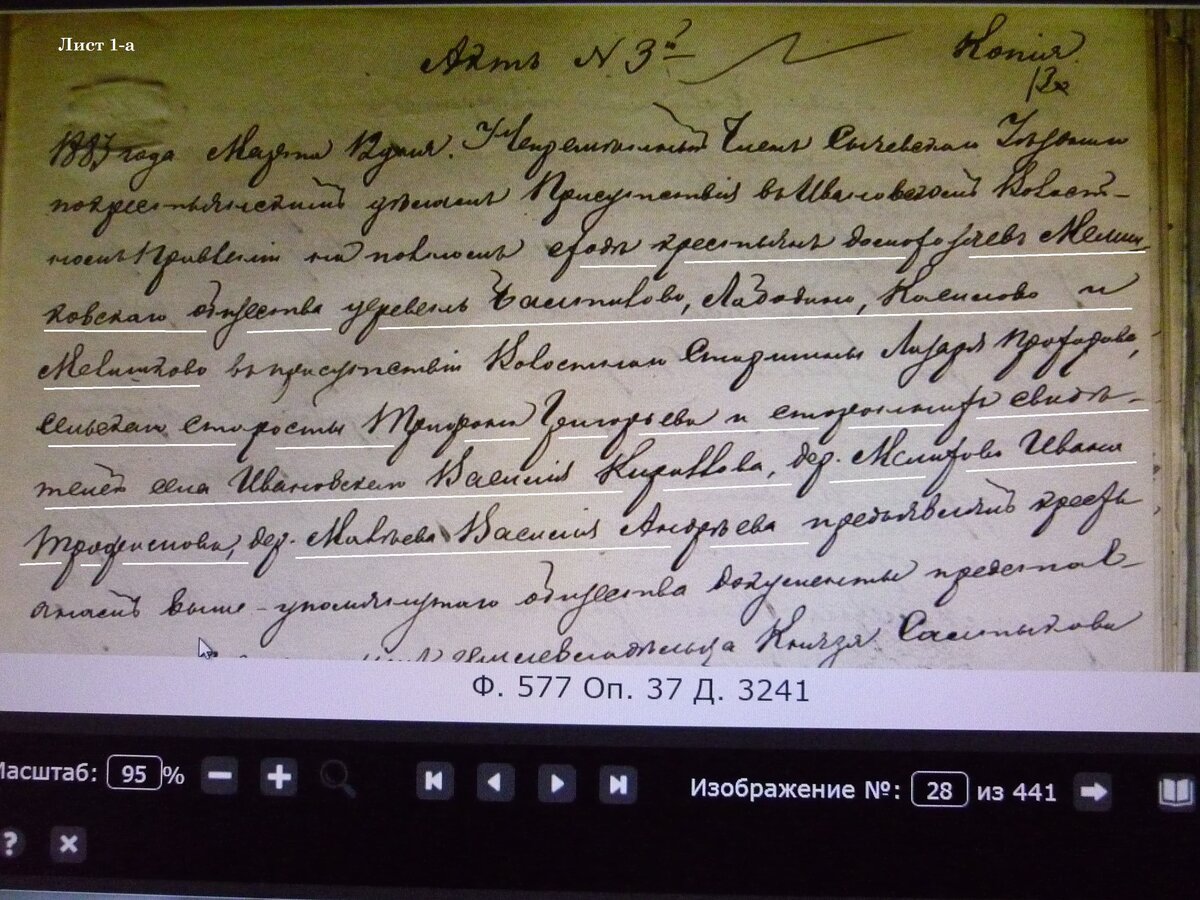 Лист 1-а
Актъ N 3й Копія
13
1883 года Марта 12 дня. Непремѣнный Членъ Сычевскаго Уѣзднаго
по крестьянскимъ дѣламъ Присутствія въ Ивановскомъ Волост-
номъ Правленіи на полномъ сходѣ крестьянъ домохозяевъ Мелиш
ковскаго общества деревень Лободино, и
Мелишково въ присутствіи Волостнаго Старшины Лазаря Прохорова,
сельскаго старосты Григорьева и стороннихъ свидѣ-
телей села Ивановскаго Василія Кириллова, дер. Ивана
Трофимова, дер. Василія Андрѣева предъявлялъ кресть
янамъ выше-упомянутаго общества документы представ-
Князя Салтыкова
Ф. 577 Оп. 37 Д. 3241
Масштаб: 95 % Изображение №: 28 из 441
?